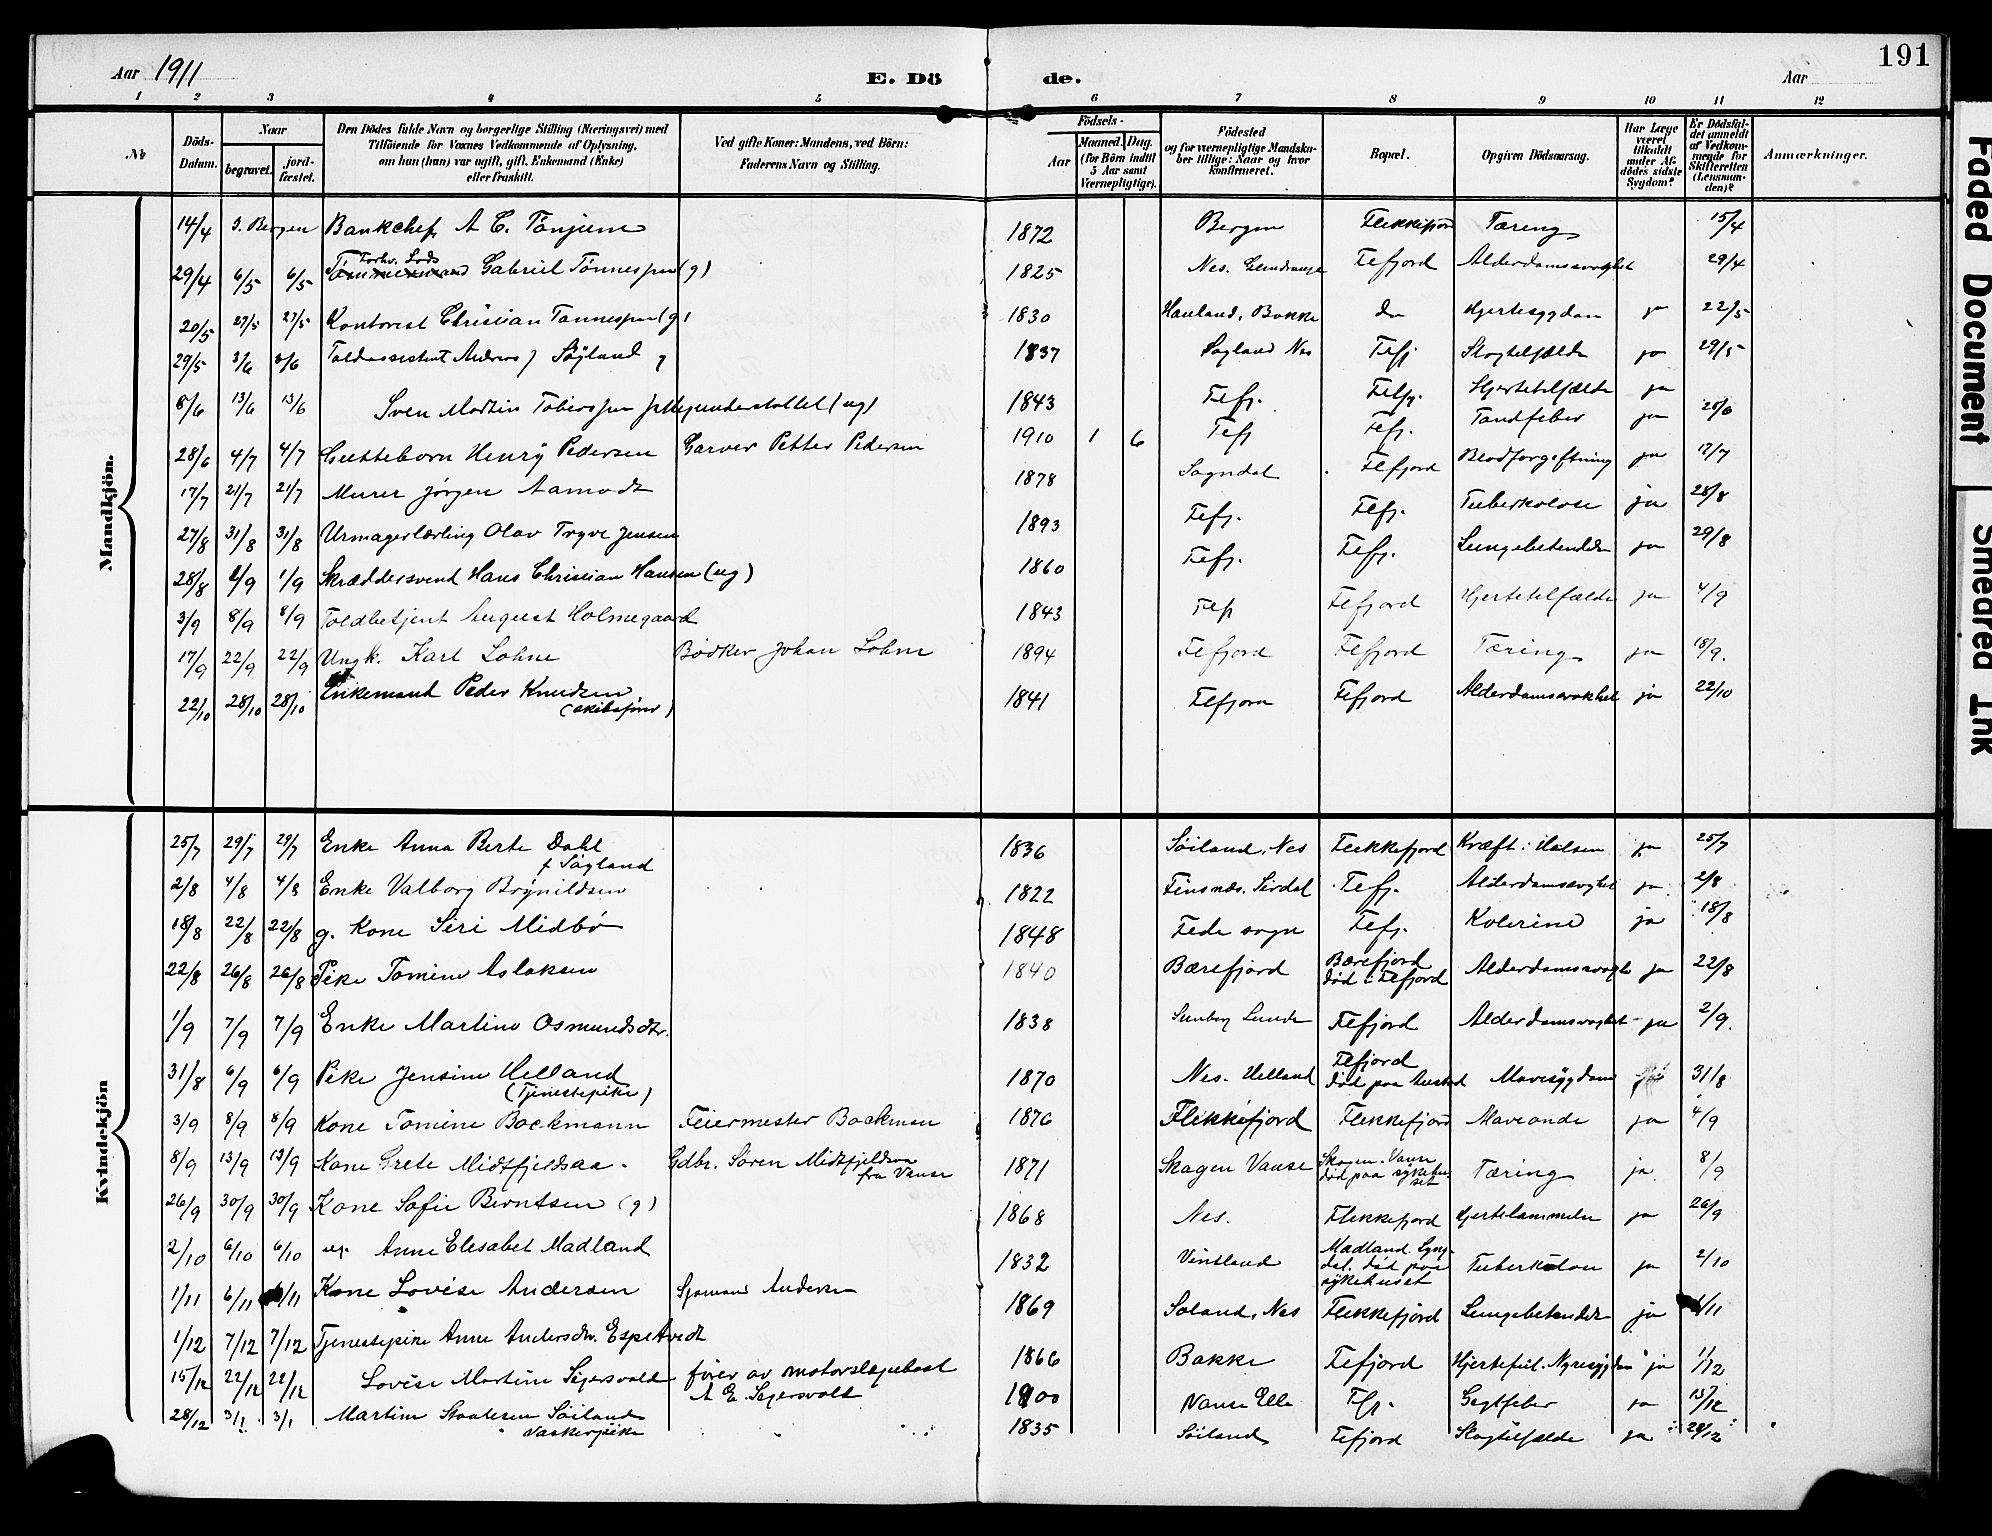 191
Aar 1911 E. Dö de. Aar
1 2 3 4 5 6 7 8 9 10 11 12
№ Döds-Datum. Naar begravet. jordfæstet. Den Dödes fulde Navn og borgerlige Stilling (Næringsvei) med Tilföiende for Voxnes Vedkommende af Oplysning, om han (hun) var ugift, gift, Enkemand (Enke) eller fraskilt. Ved gifte Koner: Mandens, ved Börn: Faderens Navn og Stilling. Födsels- Aar Maaned. Dag. (for Börn indtil 5 Aar samt Værnepligtige). Födested og for værnepligtige Mandskaber tillige: Naar og hvor konfirmeret. Bopæl. Opgiven Dödsaarsag. Har Læge været tilkaldt under Afdödes sidste Sygdom? Er Dödsfaldet anmeldt af Vedkommende for Skifteretten (Lensmanden)? Anmærkninger.
Mandkjön.
14/4 I. Bergen Bankchef A C. Tönjum 1872 Bergen Flekkefjord Tæring 15/4
29/4 6/5 6/5 Forhv. Lods Gabriel Tönnessen (g) 1825 Nes. Tefjord Alderdomssvaghet 29/4
20/5 27/5 27/5 Kontorist Christian Tönnessen (g) 1830 Hauland, Bakke do Hjertesygdom ja 22/5
29/5 3/6 3/6 Toldassistent Andreas J Söyland g 1837 Söyland Nes Flefj Slagtilfælde ja 29/5
8/6 13/6 13/6 Sven Martin Tobiassen (ug) 1843 Flefj. Flefj. Hjertetilfælde ja
28/6 4/7 4/7 Gutteborn Henry Pedersen Garver Petter Pedersen 1910 1 6 Flefj Flefj. Tandfeber ja 28/6
17/7 21/7 21/7 Murer Jörgen Aamodt 1878 Sogndal Flefjord Blodforgiftning ja 17/7
27/8 31/8 31/8 Urmagerlærling Olav Trygve Jensen 1893 Flefj. Flefj. Tuberkulose ja 28/8
28/8 1/9 1/9 Skræddersvend Hans Christian Hansen (ug) 1860 Flefj. Flefj. Lungebetendelse ja 29/8
3/9 8/9 8/9 Toldbetjent August Holmegaard 1843 Flefj Flefjord Hjertetilfælde ja 4/9
17/9 22/9 22/9 Ungk. Karl Lohne Bödker Johan Lohne 1894 Flefjord Flefjord Tæring ja 18/9.
22/10 28/10 28/10 Enkemand Peder Knudsen 1841 Flefjord Flefjord Alderdomssvakhet ja 22/10
(skibsförer)
Kvindekjön
25/7 29/7 29/7 Enke Anna Berte Dahl 1836 Söiland, Nes Flekkefjord Kræft i Halsen ja 25/7
f Söyland
2/8 4/8 4/8 Enke Valborg Brynildsen 1822 Finsnæs. Sirdal Flefj. Alderdomssvaghet ja 2/8
18/8 22/8 22/8 g. Kone Siri Midbö 1848 Fede sogn Flefj. Kolerine ja 18/8
22/8 26/8 26/8 Pike Tomine Aslaksen 1840 Bærefjord Bærefjord död i Flefjord Alderdomssvagh ja 22/8
1/9 7/9 7/9 Enke Martine Osmundsdtr. 1838 Lunde Flefjord Alderdomssvaghet ja 2/9.
31/8 6/9 6/9 Pike Jensine Helland 1870 Nes. Helland Flefjord död paa Mavesygdom 31/8
(Tjenestepike)
3/9 8/9 8/9 Kone Tomine Backmann Feiermester Backman 1876 Flekkefjord Flekkefjord Maveonde ja 4/9
8/9 13/9 13/9 Kone Grete Midtfjeldsaa. Gdbr. Sören Midtfjeldsaa fra Vanse 1871 Skagen Vanse Skagen. Vanse död paa sykehuset Tæring ja 8/9
26/9 30/9 30/9 Kone Sofie Berntsen (g) 1868 Nes. Flekkefjord Hjertelammelse ja 26/9
2/10 6/10 6/10 ug. Anne Elisabet Madland 1832 Vintland Madland. Lyngdal. död paa sykehuset Tuberkulose ja 2/10
1/11 6/11 6/11 Kone Lovise Andersen Sjömand Andersen 1869 Soland, Nes Flekkefjord Lungebetendelse ja 1/11
1/12 7/12 7/12 Tjenestepike Anne Andersdtr. Espetvedt 1866 Bakke Flefjord Hjertefeil. Nyresygdom ja 1/12
15/12 22/12 22/12 Lovise Martine Sigersvold förer av motorslepebaat 1900 Vanse Elle Flefj. Gigtfeber ja 15/12
A E. Sigersvold
28/12 3/1 3/1 Martine Söiland 1835 Söiland Flefjord Slagtilfælde ja 28/12
Vaskerpike
Faded Document
Smeared Ink